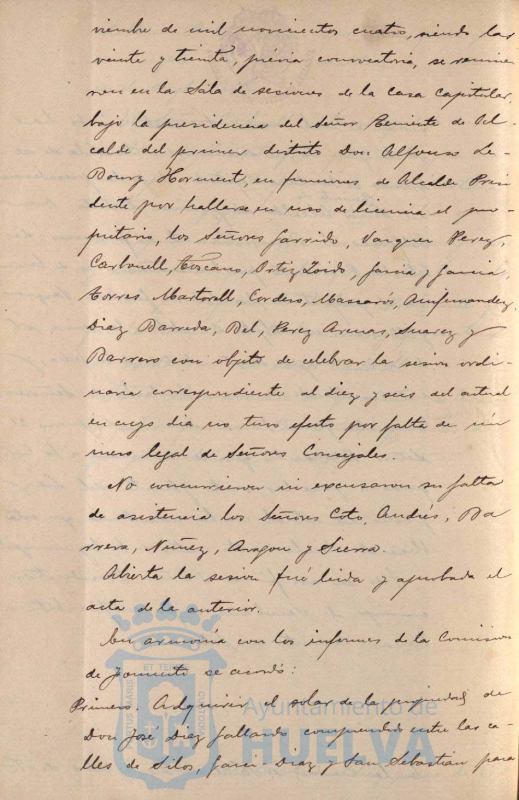 viembre de mil novecientos cuatro, siendo las
veinte y treinta, prévia convocatoria, se reunie
ron en la Sala de sesiones de la casa Capitular,
bajo la presidencia del Señor Teniente de Al-
calde del primer distrito Don Alfonso Le-
Bourg Horment, en funciones de Alcalde Presi
dente por hallarse en uso de licencia el pro-
pietario, los Señores Garrido, Vazquez Perez,
Carbonell, Toscano, Ortiz Toido, Garcia y Garcia,
Torres Martorell, Cordero, Mascarós,
Diaz Barreda, Bel, Perez Arenas, Suarez y
Barrero con objeto de celebrar la sesion ordi-
naria correspondiente al diez y seis del actual
en cuyo dia no tuvo efecto por falta de nú
mero legal de Señores Concejales.
No concurrieron ni excusaron su falta
de asistencia los Señores Coto, Andrés, Ba
rrera, Nuñez, Aragon y Sierra.
Abierta la sesion fué leida y aprobada el
acta de la anterior.
En armonía con los informes de la Comision
de Fomento se acordó:
Primero. Adquirir el solar de la propiedad de
Don José Diaz Gallardo comprendido entre las ca-
lles de Silos, Garci-Diaz y San Sebastián para
Ayuntamiento de
HUELVA